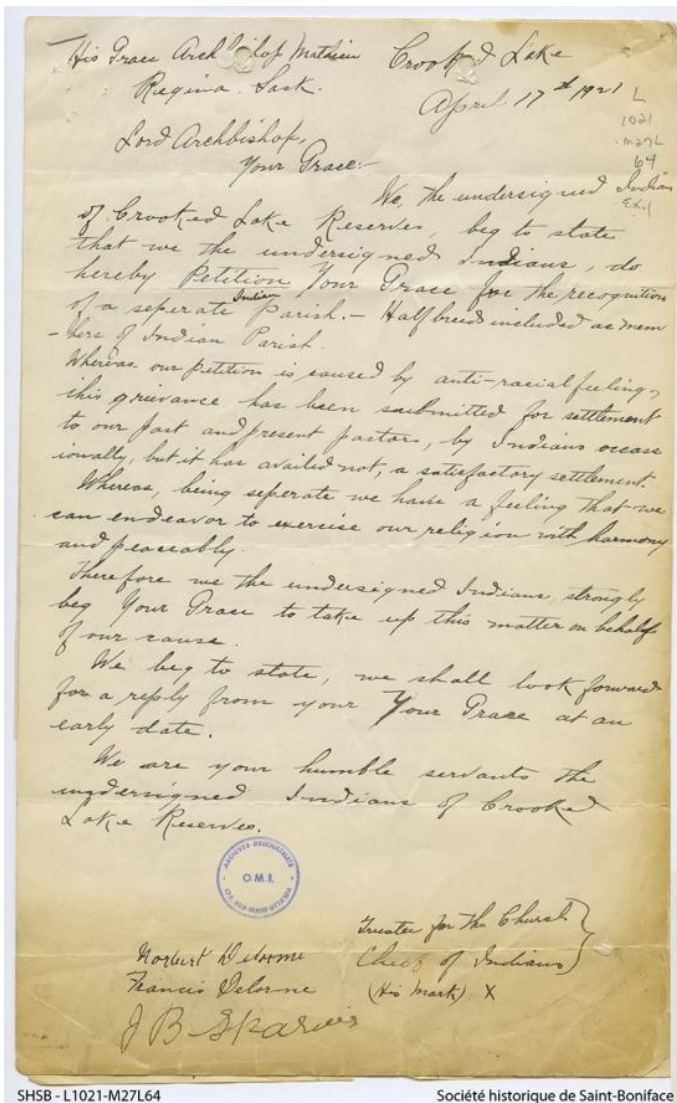 His Grace Archbishop Mathieu
Regina. Sask.
Crooked Lake
April 17th 1921
L
1021
.M27L
64
Ex.1
Lord Archbishop,
Your Grace:-
We, the undersigned Indian
of Crooked Lake Reserves, beg to state
that we the undersigned Indians, do
hereby Petition Your Grace for the recognition
of a seperate Indian Parish. - Half breeds included as mem
- bers of Indian Parish.
Whereas our petition is caused by anti-racial feeling,
this grievance has been submitted for settlement
to our past and present pastors, by Indians occass
ionally, but it has availed not, a satisfactory settlement.
Whereas, being seperate we have a feeling that we
can endeavor to exercise our religion with harmony
and peaceably.
Therefore we the undersigned Indians, strongly
beg Your Grace to take up this matter on behalf
of our cause.
We beg to state, we shall look forward
for a reply from your Your Grace at an
early date.
We are your humble servants the
undersigned Indians of Crooked
Lake Reserves.
ARCHIVES DESCHATELETS
O.M.I.
175, RUE MAIN OTTAWA
Trustee for the Church
Norbert Delorme
Chief of Indians
Francis Delorme
(His Mark) X
J B Sparvier
SHSB - L1021-M27L64
Société historique de Saint-Boniface